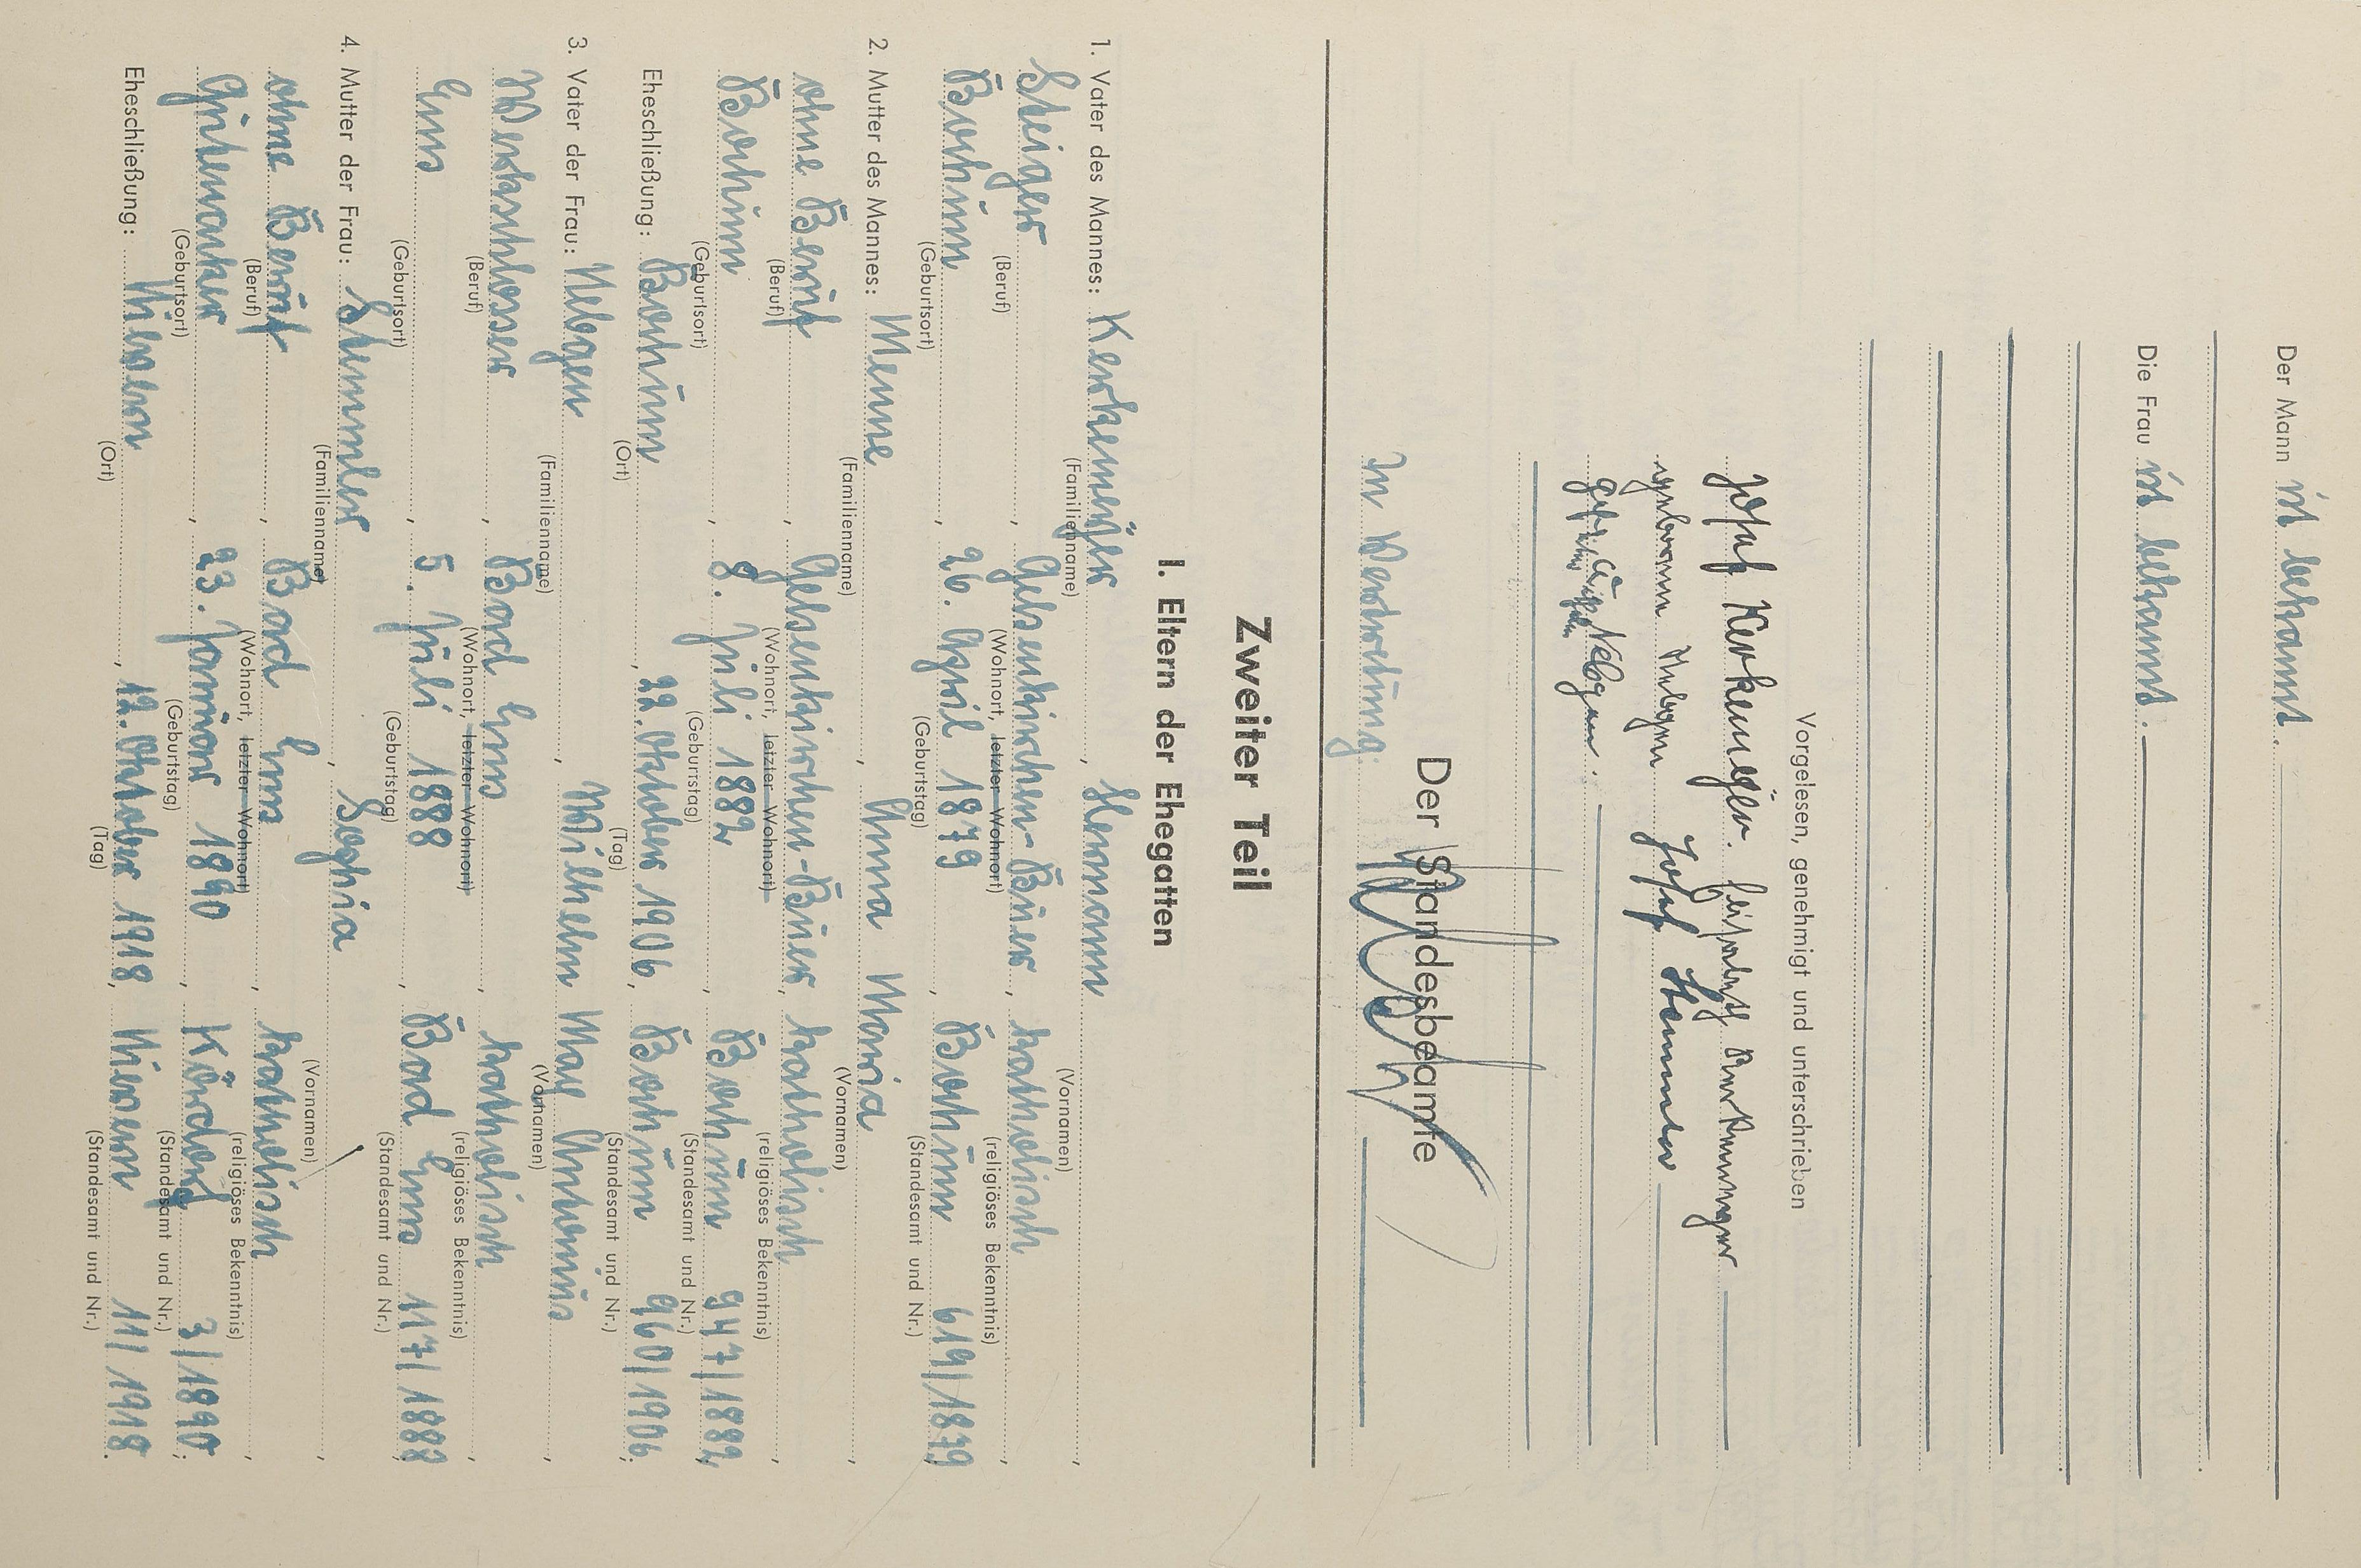 Der Mann ist bekannt.
Die Frau ist bekannt.
Vorgelesen, genehmigt und unterschrieben
Josef Kerkemeÿer.
geborene Nebgen Josef Stemmler
geb. Nebgen.
Der Standesbeamte
In Vertretung:
Zweiter Teil
I. Eltern der Ehegatten
1. Vater des Mannes: Kerkemeÿer, Hermann,
(Familienname) (Vornamen)
Steiger, Gelsenkirchen-Buer, katholisch,
(Beruf) (Wohnort, letzter Wohnort) (religiöses Bekenntnis)
Bochum, 26. April 1879, Bochum 619/1879
(Geburtsort) (Geburtstag) (Standesamt und Nr.)
2. Mutter des Mannes: Menne, Anna Maria,
(Familienname) (Vornamen)
ohne Beruf, Gelsenkirchen-Buer, katholisch,
(Beruf) (Wohnort, letzter Wohnort) (religiöses Bekenntnis)
Bochum, 8. Juli 1882, Bochum 947/1882,
(Geburtsort) (Geburtstag) (Standesamt und Nr.)
Eheschließung: Bochum, 22. Oktober 1906, Bochum 960/1906.
(Ort) (Tag) (Standesamt und Nr.)
3. Vater der Frau: Nebgen, Wilhelm Max Antonius,
(Familienname) (Vornamen)
Werkschlosser, Bad Ems, katholisch,
(Beruf) (Wohnort, letzter Wohnort) (religiöses Bekenntnis)
Ems, 5. Juli 1888, Bad Ems 117/1888
(Geburtsort) (Geburtstag) (Standesamt und Nr.)
4. Mutter der Frau: Stemmler, Sophia,
(Familienname) (Vornamen)
ohne Beruf, Bad Ems, katholisch,
(Beruf) (Wohnort, letzter Wohnort) (religiöses Bekenntnis)
Güthenacker, 23. Januar 1890, Kördorf 3/1890;
(Geburtsort) (Geburtstag) (Standesamt und Nr.)
Eheschließung: Nievern, 12. Oktober 1918, Nievern 11/1918.
(Ort) (Tag) (Standesamt und Nr.)